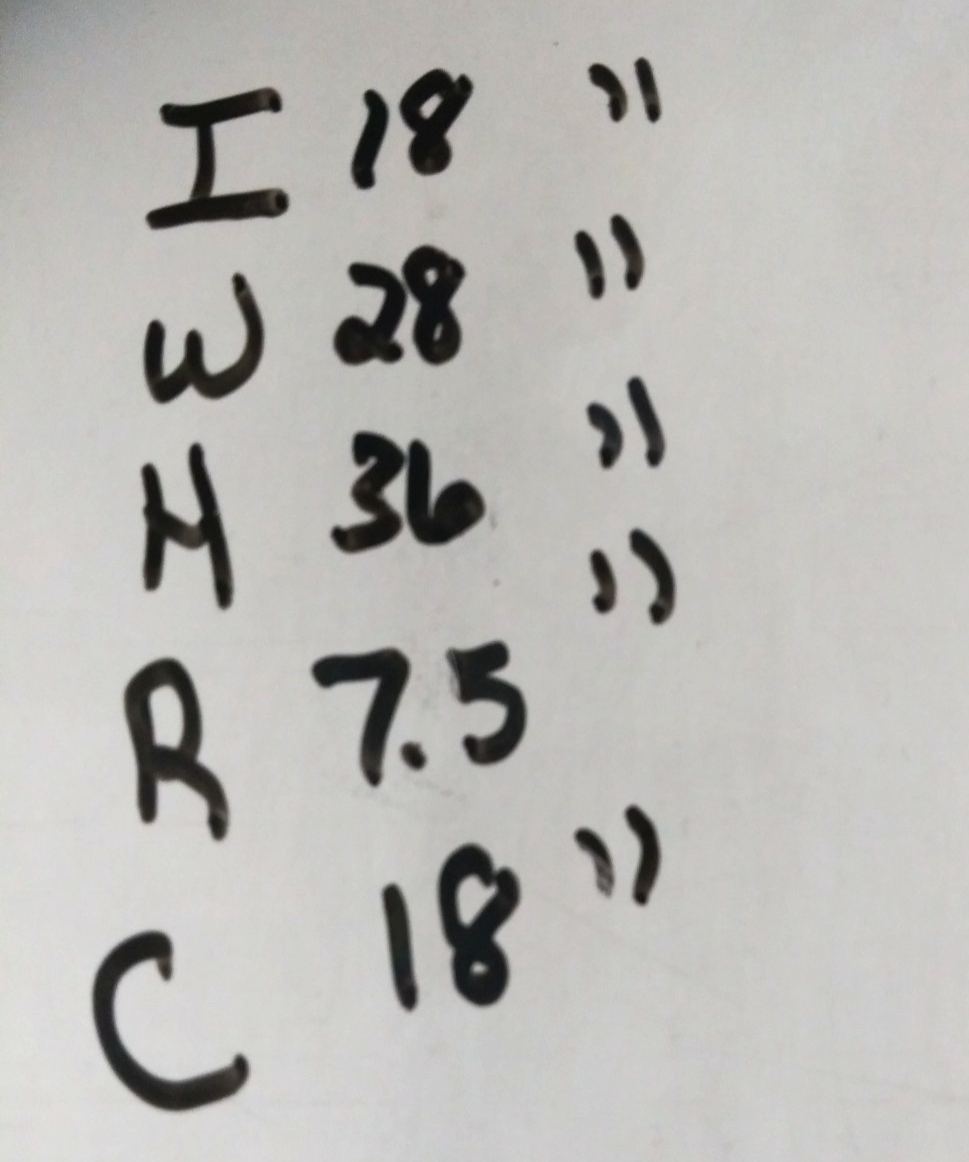 I 18 "
W 28 "
H 36 "
R 7.5 "
C 18 "